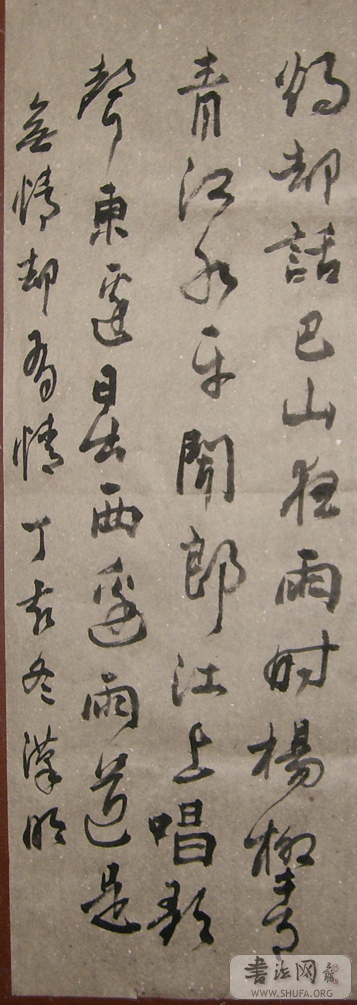 燭却話巴山夜雨時楊柳青
青江水平聞郎江上唱歌
聲東邊日出西邊雨道是
無情却有情 丁亥冬漢明
書法网
WWW.SHUFA.ORG